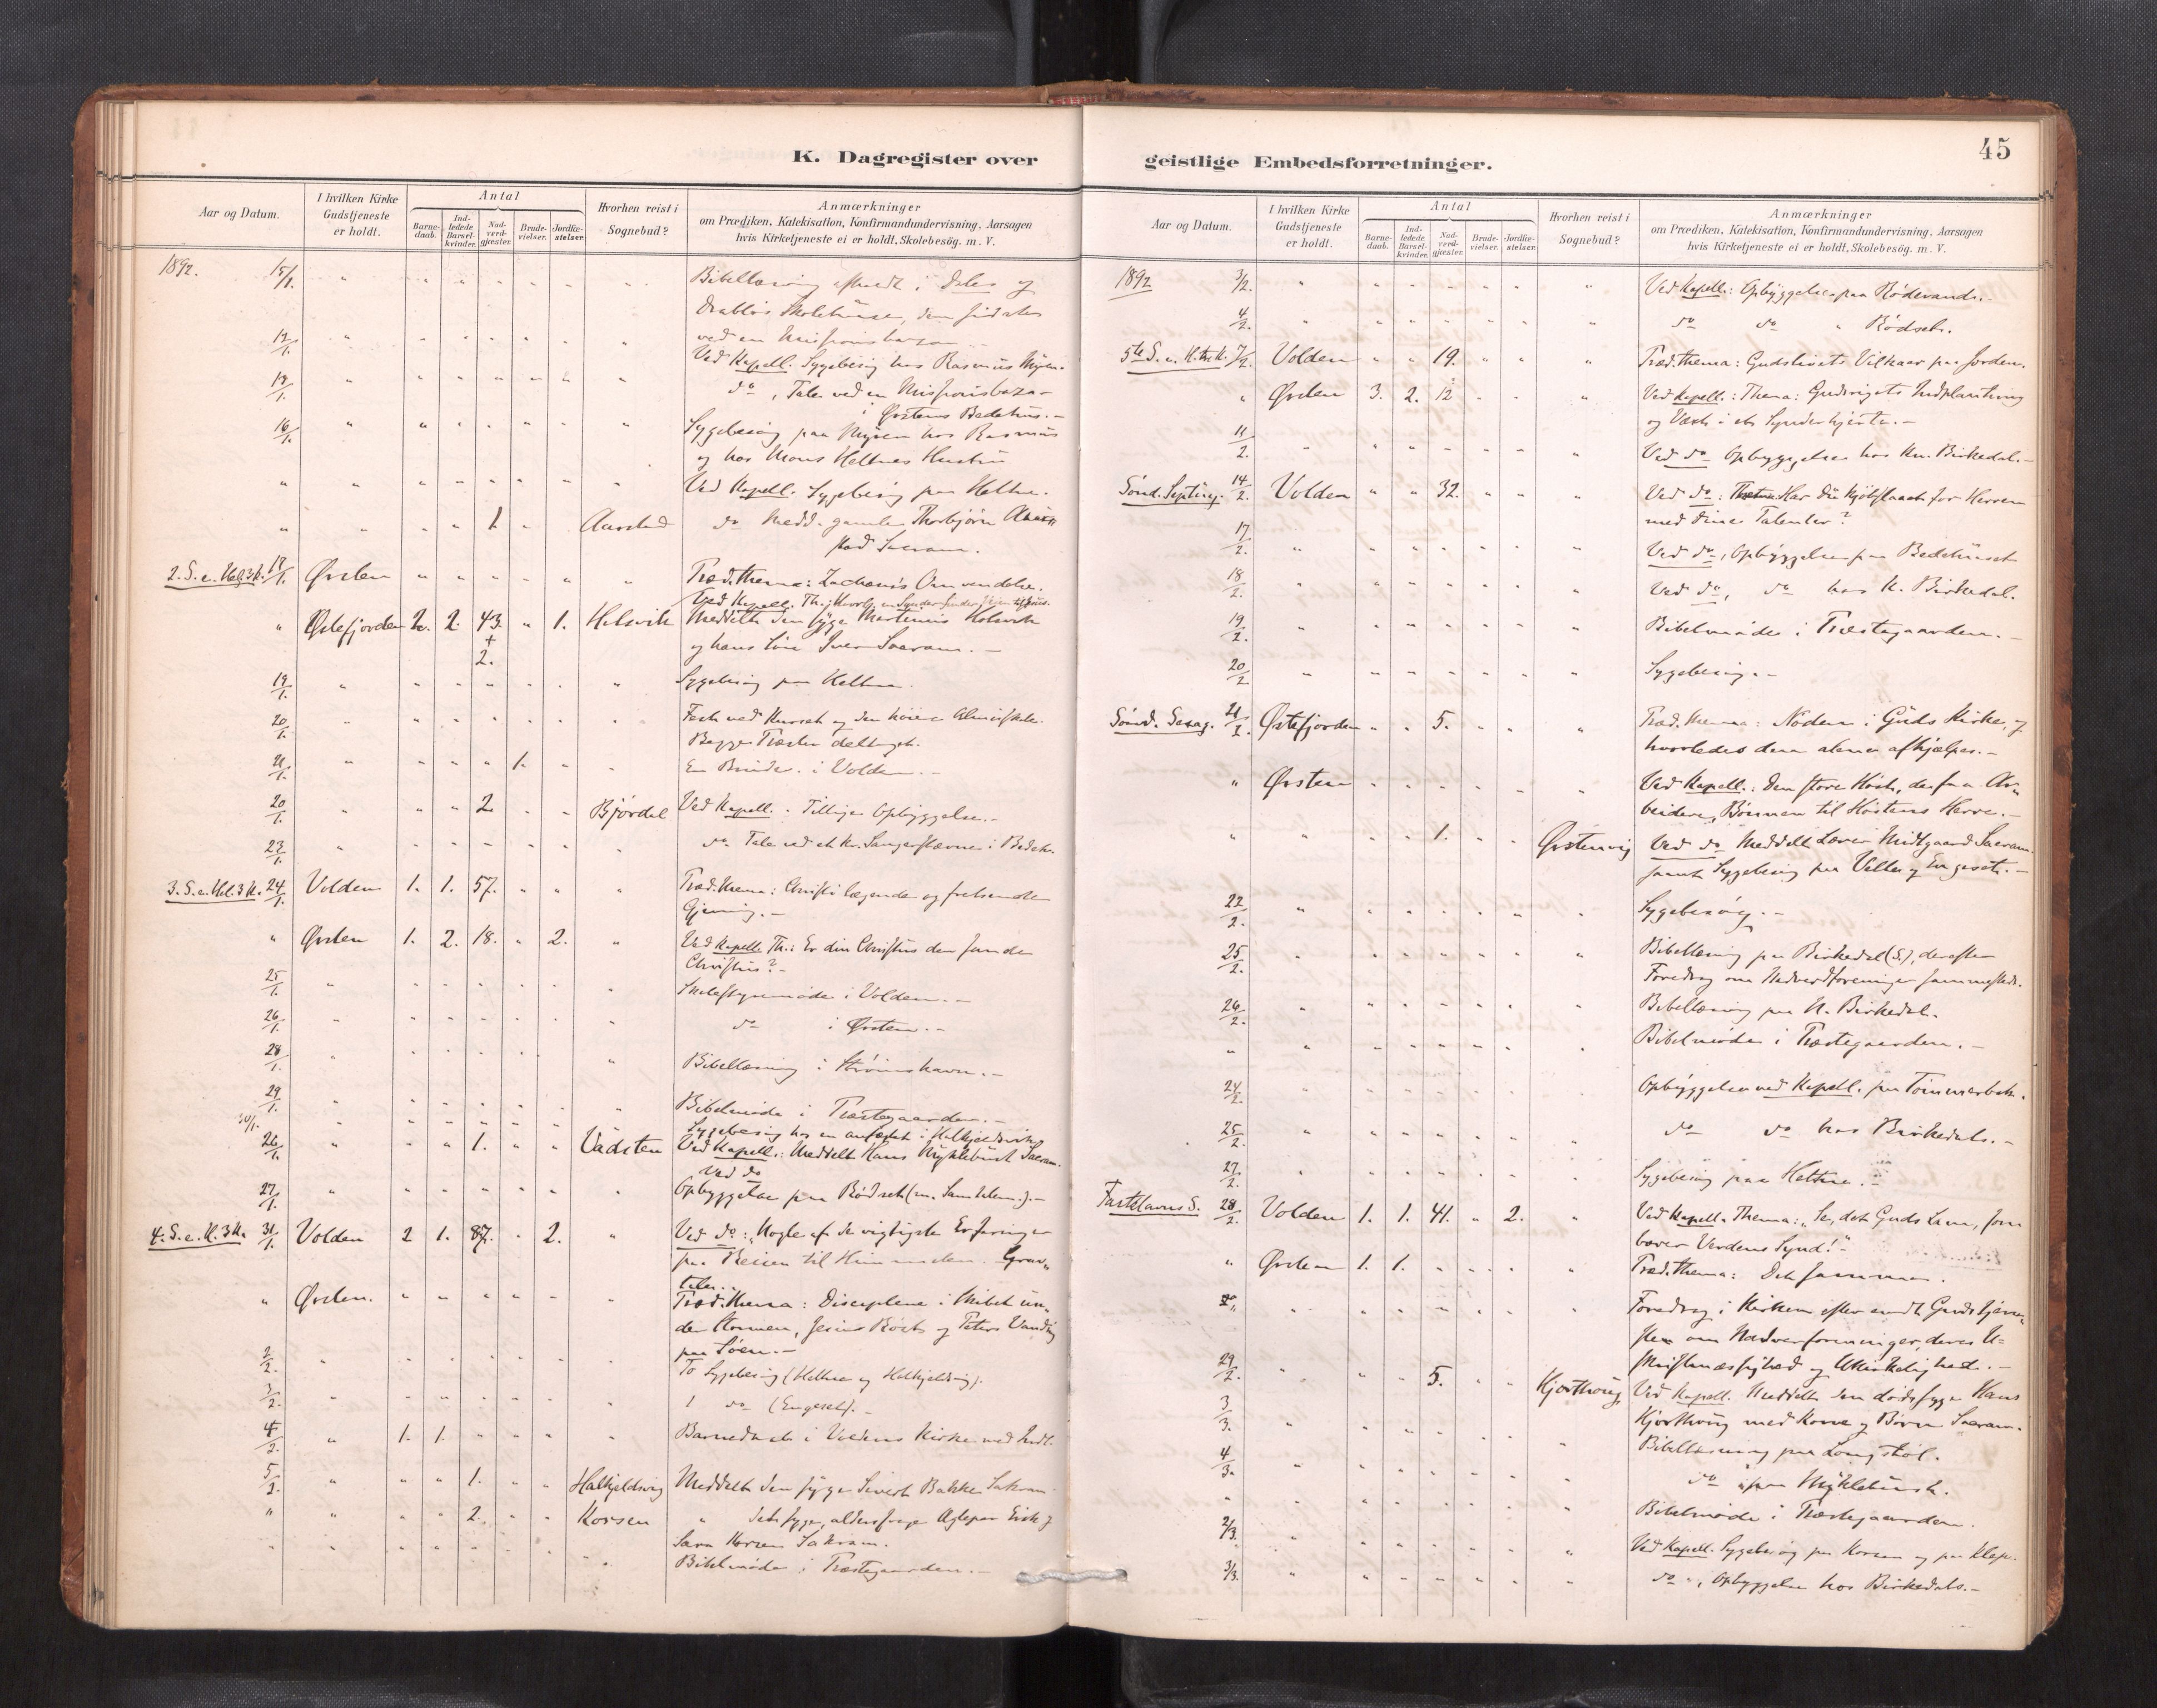 45
K. Dagregister over
geistlige Embedsforretninger.
Aar og Datum.
I hvilken Kirke Gudstjeneste er holdt.
Antal
Barne-daab.
Ind-ledede Barsel-kvinder.
Nad-verd-gjæster.
Brude-vielser.
Jordfæ-stelser.
Hvorhen reist i Sognebud?
Anmærkninger
om Prædiken, Katekisation, Konfirmandundervisning, Aarsagen
hvis Kirketjeneste ei er holdt, Skolebesög. m. V.
1892. 15/1. Bibellæsning afholdt i Dales og
Skolehuse, den sidste
ved en Missionsbazar
12/1. Ved Kapell. Sygebesøg hos Rasmus Myren.
do, Tale ved en Missionsbazar
i Ørstens Bedehus.-
16/1. Sygebesøg paa Myren hos Rasmus
og hos Mons Heltnes Hustru
" Ved Kapell. Sygebesøg paa Heltne.
" 1. Aarstad do Medd. gamle Thorbjørn Aar-
stad Sacram.
2. S. e. Hel. 3 K. 17/1. Ørsten Præd. thema: Zachæus's Omvendelse.
Ved Kapell. Th.:
" Østefjorden 2. 2. 43. " 1. Helsvik Meddelt den syge Martinus Helsvik
+
2.
og hans Søn Iver Sacram.-
19/1. Sygebesøg paa Heltne.
20/1. Begge Præster deltaget.
21/1. 1. En Brudev. i Volden.-
20/1. 2 Bjørdal Ved Kapell. Tillige Opbyggelse.-
23/1. do Tale ved et Kr. Sangerstævne i Bedeh.
3. S. e. Hel. 3 K. 24/1. Volden 1. 1. 57. Præd. thema: Christi lægende og frelsende
Gjerning.-
" Ørsten 1. 2. 18. " 2. Ved Kapell. Th.: Er din Christus den sande
Christus?-
25/1. Skolestyremøde i Volden.-
26/1. do i Ørsten.-
28/1. Bibellæsning i Strømshavn.-
29/1. Bibelmøde i Præstegaarden.-
30/1. Sygebesøg hos en anfægtet i Halkjeldsvik
26/1. 1. Vadsten Ved Kapell.: Meddelt Hans Myklebust Sacram.
Ved do
27/1. Opbyggelse paa Rødset (m. Samtalem.).-
4. S. e. H. 3 K. 31/1. Volden 2 1. 87. " 2. Ved do: "Nogle af de vigtigste Erfaringer
paa Reisen til Himmelen. Grav-
taler.
" Ørsten. Præd. thema: Disciplene i Skibet un-
der Stormen, Jesus's Røst og Peters Vandring
paa Søen.-
2/2. To Sygebesøg (Heltne og Halkjeldsvig).
3/2. 1 do (Engeset).-
4/2. 1. 1. Barnedaab i Voldens Kirke med Indl.
5/2. 1. Halkjeldsvig Meddelt den syge Sivert Bakke Sakram.
" 2. Korsen " det syge, aldersvage Ægtepar Eirik og
Sara Korsen Sakram.
Bibelmøde i Præstegaarden.-
1892 3/2. Ved Kapell.: Opbyggelse paa Rødevand.-
4/2. do do " Rødset.
5te S. e. H. tre K. 7/2. Volden " " 19. Præd. thema: Gudslivets Vilkaar paa Jorden.
" Ørsten 3. 2. 12 Ved Kapell.: Thema: Gudsrigets Indplantning
og Væxt i et Synderhjerte.-
11/2. Ved do Opbyggelse hos Kn. Birkedal.-
Sønd. Septuag. 14/2. Volden " " 32. Ved do: Har du kjøbslaaet for Herren
med dine Talenter?
17/2. Ved do, Opbyggelse paa Bedehuset
18/2. Ved do, do hos K. Birkedal.
19/2. Bibelmøde i Præstegaarden.-
20/2 Sygebesøg.-
Sønd. Sexag. 21/2. Østefjorden " " 5. Præd. thema: Nøden i Guds Kirke, og
hvorledes den alene afhjælpes.-
" Ørsten Ved Kapell.: Den store Høst, de faa Ar-
beidere, Bønnen til Høstens Herre.-
1. Ørstenvig Ved do Meddelt Lærer Midtgaard Sacram.
samt Sygebesøg paa Velle og Engeset.-
22/2. Sygebesøg.-
25/2. Bibellæsning paa Birkedal (S.), derefter
Foredrag om Nadverdforeninger sammesteds.
26/2. Bibellæsning paa N. Birkedal.
" Bibelmøde i Præstegaarden.-
24/2. Opbyggelse ved Kapell. paa
25/2. do do hos Birkedals.-
27/2. Sygebesøg paa Heltne.-
Fastelavns S. 28/2. Volden 1. 1. 41. " 2. Ved Kapell. Thema: "Se, det Guds Lam, som
bærer Verdens Synd!"
" Ørsten 1. 1. Præd. thema: Det samme.
Foredrag i Kirken efter endt Gudstjene-
ste om Nadverforeninger, deres U-
skriftmæssighed og Ukirkelighed.-
29/2. 5. Kjørthoug Ved Kapell. Meddelt den dødssyge Hans
Kjørthoug med Kone og Børn Sacram.
3/3. Bibellæsning paa
4/3. do paa Myklebust.
" Bibelmøde i Præstegaarden.
2/3. Ved Kapell. Sygebesøg paa Korsen og paa Klep.
3/3. do ", Opbyggelse hos Birkedals.-